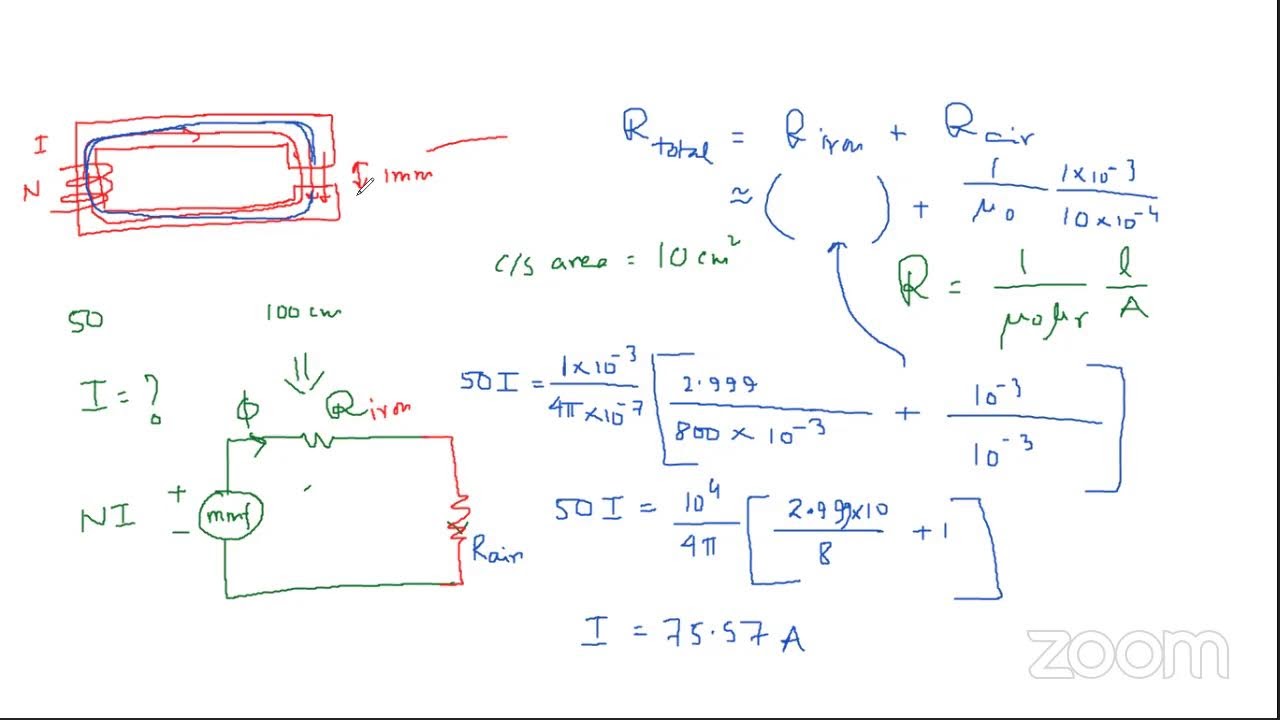 I
N
1mm
R total = R iron + R air
≈ ( ) + 1/μ0 1×10^-3/10×10^-4
c/s area = 10 cm^2
R = 1/μ0μr l/A
50
100 cm
I = ?
ϕ
R iron
NI
+
mmf
−
Rair
50I = 1×10^-3/4π×10^-7 [ 2.999/800×10^-3 + 10^-3/10^-3 ]
50I = 10^4/4π [ 2.999×10/8 + 1 ]
I = 75.57 A
zoom